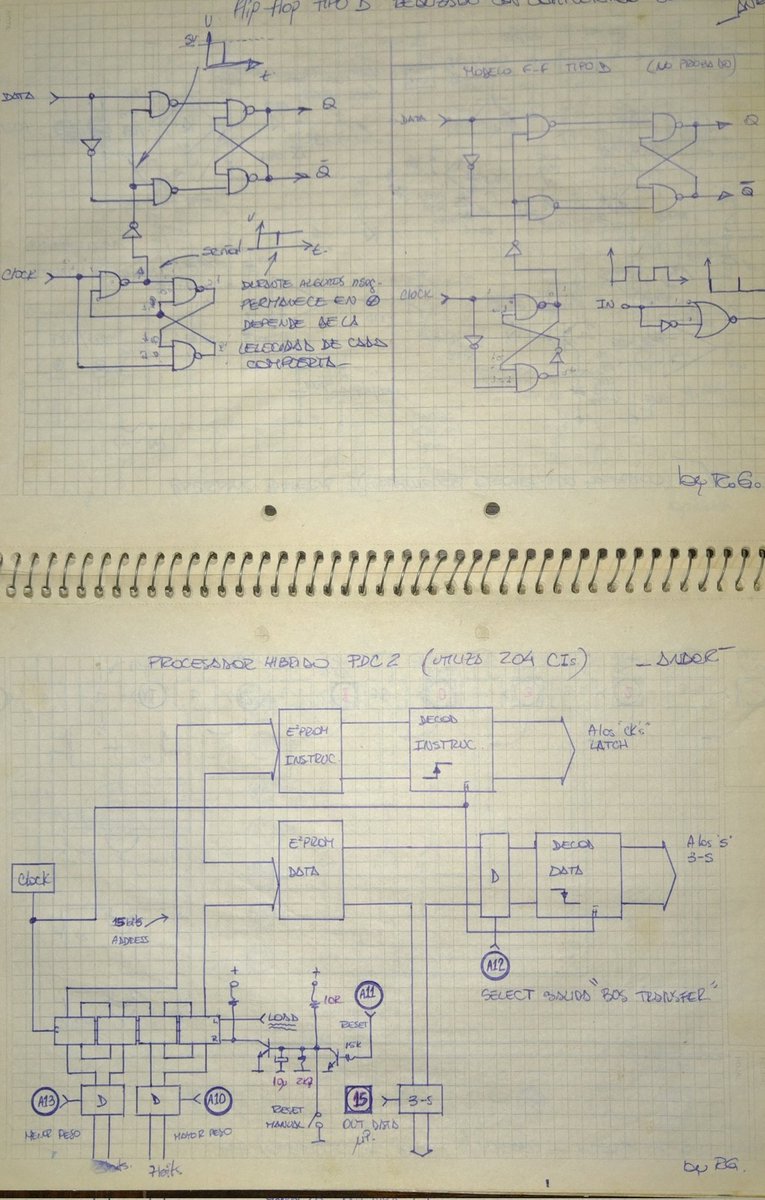 Flip Flop TIPO D
MODELO F-F TIPO D (NO PROBADO)
U
t
DATA
Q
Q̄
DATA
Q
Q̄
SEÑAL
U
t.
CLOCK
DURANTE ALGUNOS nseg.
PERMANECE EN 0
DEPENDE DE LA
VELOCIDAD DE CADA
COMPUERTA
CLOCK
IN
by R.G.
PROCESADOR HIBRIDO PDC2 (UTILIZA 204 CIs)
E²PROM
INSTRUC.
DECOD
INSTRUC.
A los "CK's"
LATCH
E²PROM
DATA
D
DECOD
DATA
A los "S"
3-S
Clock
15 bits
ADDRESS
A12
SELECT SALIDA "BUS TRANSFER"
+
+
10K
A11
L
LOAD
RESET
R
15K
10µ
2K2
A13
D
D
A10
RESET
MANUAL
15
3-S
MENOR PESO
MAYOR PESO
OUT DATA
µP.
7 bits.
by RG.